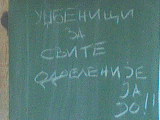 УЏБЕНИЦИ
ЗА
СВИТЕ
ОДДЕЛЕНИЈЕ
ЗА
ДО!!